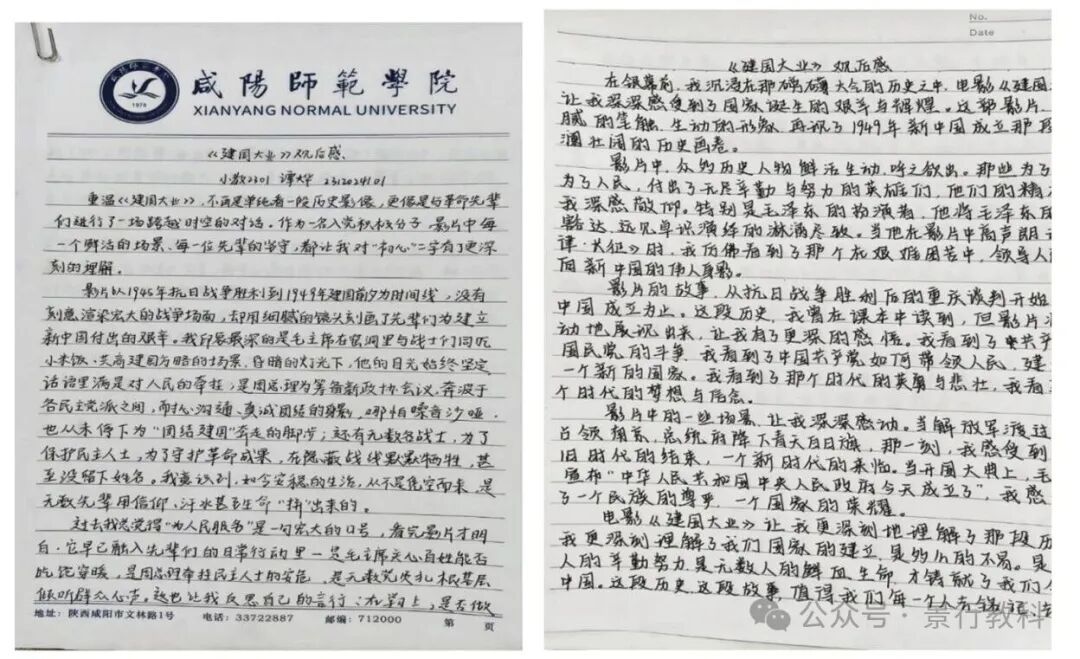 咸陽師範學院
XIANYANG NORMAL UNIVERSITY
1978
《建国大业》观后感
小教2301 谭大华 2312024101
重温《建国大业》,不再是单纯看一段历史影像,更像是与革命先辈
们进行了一场跨越时空的对话。作为一名入党积极分子,影片中每
一个鲜活的场景、每一位先辈的坚守,都让我对“初心”二字有了更深
刻的理解。
影片以1945年抗日战争胜利到1949年建国前夕为时间线,没有
刻意渲染宏大的战争场面,却用细腻的镜头刻画了先辈们为建立
新中国付出的艰辛。我印象最深的是毛主席在窑洞里与战士们同吃
小米饭、共商建国方略的场景,昏暗的灯光下,他的目光始终坚定
话语里满是对人民的牵挂;是周总理为筹备新政协会议,奔波于
各民主党派之间,耐心沟通、真诚团结的身影,哪怕嗓音沙哑,
也从未停下为“团结建国”奔走的脚步;还有无数名战士,为了
保护民主人士,为了守护革命成果,在隐蔽战线默默牺牲,甚
至没留下姓名。我意识到,如今安稳的生活,从不是凭空而来,是
无数先辈用信仰、汗水甚至生命“拼”出来的。
过去我总觉得“为人民服务”是一句宏大的口号,看完影片才明
白,它早已融入先辈们的日常行动里一是毛主席关心百姓能否
吃饱穿暖,是周总理牵挂民主人士的安危,是无数党员扎根基层
倾听群众心声。这也让我反思自己的言行:在学习上,是否做
地址:陕西咸阳市文林路1号 电话:33722887 邮编:712000 第 页
No.
Date
《建国大业》观后感
在银幕前,我沉浸在那磅礴大气的历史之中,电影《建国
让我深深感受到了国家诞生的艰辛与辉煌。这部影片,
腻的笔触,生动的形象,再现了1949年新中国成立那段
澜壮阔的历史画卷。
影片中,众多历史人物鲜活生动,呼之欲出。那些为了
为了人民,付出了无尽辛勤与努力的英雄们,他们的精
我深感敬仰。特别是毛泽东的扮演者,他将毛泽东的
豁达,远见卓识演绎的淋漓尽致。当他在影片中高声朗
律·长征》时,我仿佛看到了那个在艰难困苦中,领导人
向新中国的伟人身影。
影片的故事,从抗日战争胜利后的重庆谈判开始
中国成立为止。这段历史,我曾在课本中读到,但影片
动地展现出来,让我有了更深的感悟。我看到了中共
国民党的斗争,我看到了中国共产党如何带领人民,建
一个新的国家。我看到了那个时代的英勇与悲壮,我看
个时代的梦想与信念。
影片中的一些场景,让我深深感动。当解放军渡过
占领南京,总统府降下青天白日旗,那一刻,我感受到
旧时代的结束,一个新时代的来临。当开国大典上,毛
宣布“中华人民共和国中央人民政府今天成立了”,我感
了一个民族的尊严,一个国家的荣耀。
电影《建国大业》让我更深刻地理解了那段历
我更深刻理解了我们国家的建立,是多么的不易。是
人的辛勤努力,是无数人的鲜血,生命,才铸就了我们
中国。这段历史,这段故事,值得我们每一个人去铭记,
公众号·景行教科